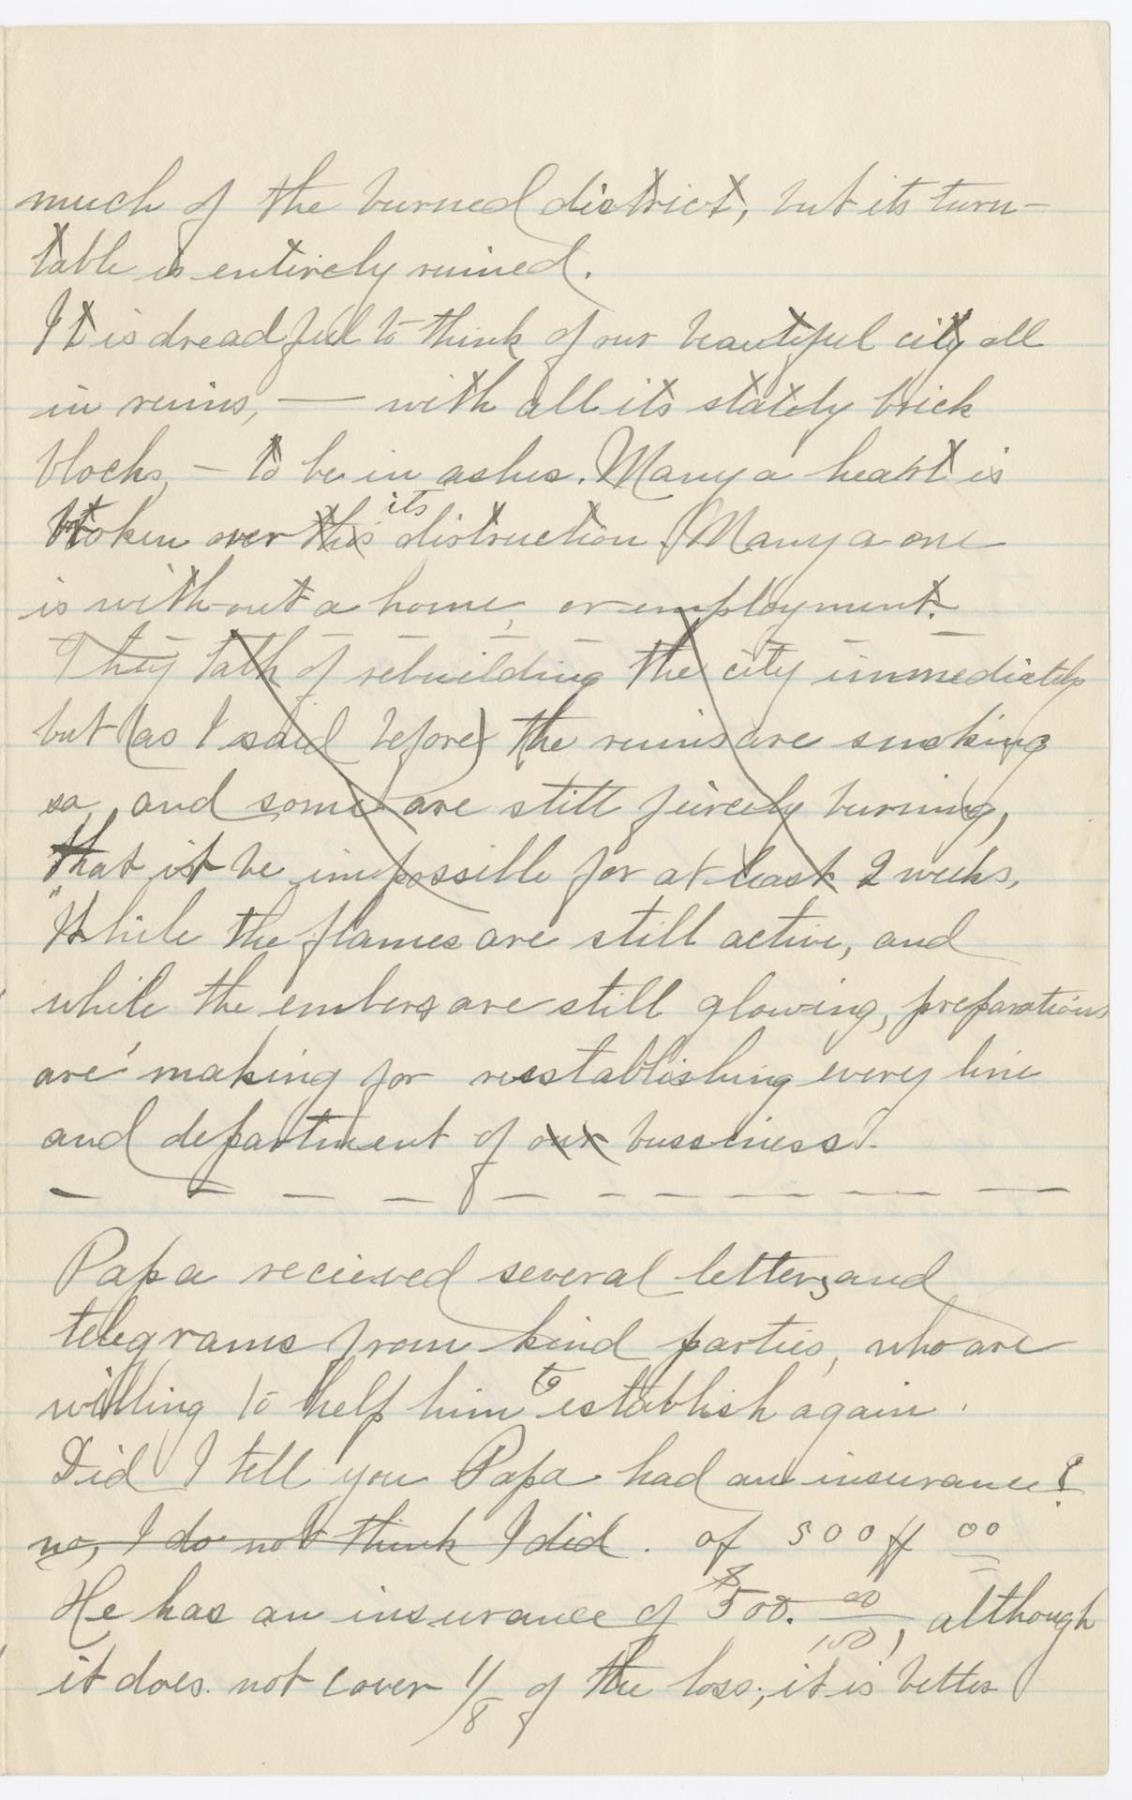 much of the burned district, but its turn-
table is entirely ruined.
It is dreadful to think of our beautiful city all
in ruins, — with all its stately brick
blocks, - to be in ashes. Many a heart is
broken over this its distruction. Many a one
is without a home, or employment.
They talk of rebuilding the city immediately
but (as I said before) the ruins are smoking
so, and some are still feircely burning,
that it be impossible for at least 2 weeks.
"While the flames are still active, and
while the embers are still glowing, preparations
are' making for reestablishing every line
and department of our bussiness".
— — — — — — — — — — —
Papa recieved several letters, and
telegrams from kind parties, who are
willing to help him to establish again.
Did I tell you Papa had an insurance?
no, I do not think I did. of 500 00
He has an insurance of $500. 00/100, although
it does not cover 1/8 of the loss; it is better